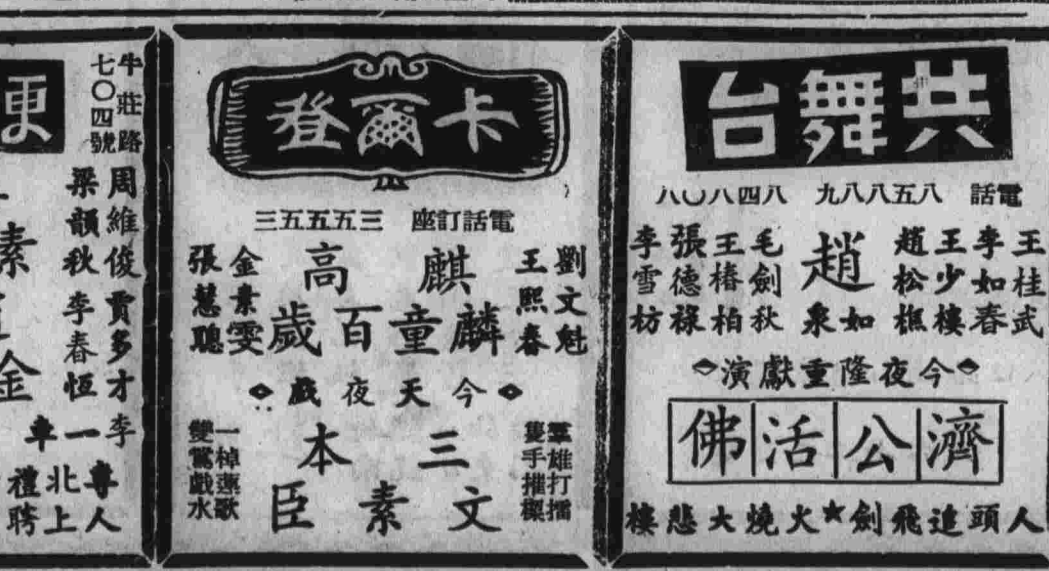 共舞台
電話 八五八八九 八四八〇八
王桂武
李如春
王少樓
趙松樵
趙如泉
毛劍秋
王椿柏
張德祿
李雪枋
今夜隆重獻演
濟公活佛
人頭追飛劍★火燒大悲樓
卡爾登
電話訂座 三五五五三
劉文魁
王熙春
麒麟童
高百歲
金素雯
張慧聰
今天夜戲
羣雄打擂
隻手推樑
三本
文素臣
一棹蓮歌
雙鴛戲水
更
牛莊路
七〇四號
周維俊 賈多才 李
梁韻秋 李春恆
一車
素
金
專人
北上
禮聘